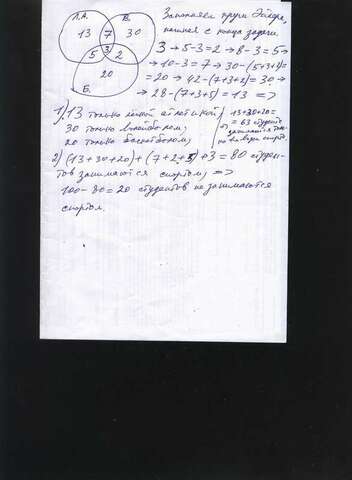 Л.А.
В.
13 7 30
5 3 2
20
Б.
Заполняем круги Эйлера,
начиная с конца задачи.
3 → 5-3=2 → 8-3=5 →
→ 10-3=7 → 30-(5+3+2)=
=20 → 42-(7+3+2)=30 →
→ 28-(7+3+5)=13 =>
1) 13 только лёгкой атлетикой,
30 только волейболом,
20 только баскетболом,
13+30+20=
=63 студента
занимаются толь-
ко 1 видом спорта.
2) (13+30+20)+(7+2+5)+3=80 студен-
тов занимаются спортом, =>
100-80=20 студентов не занимаются
спортом.